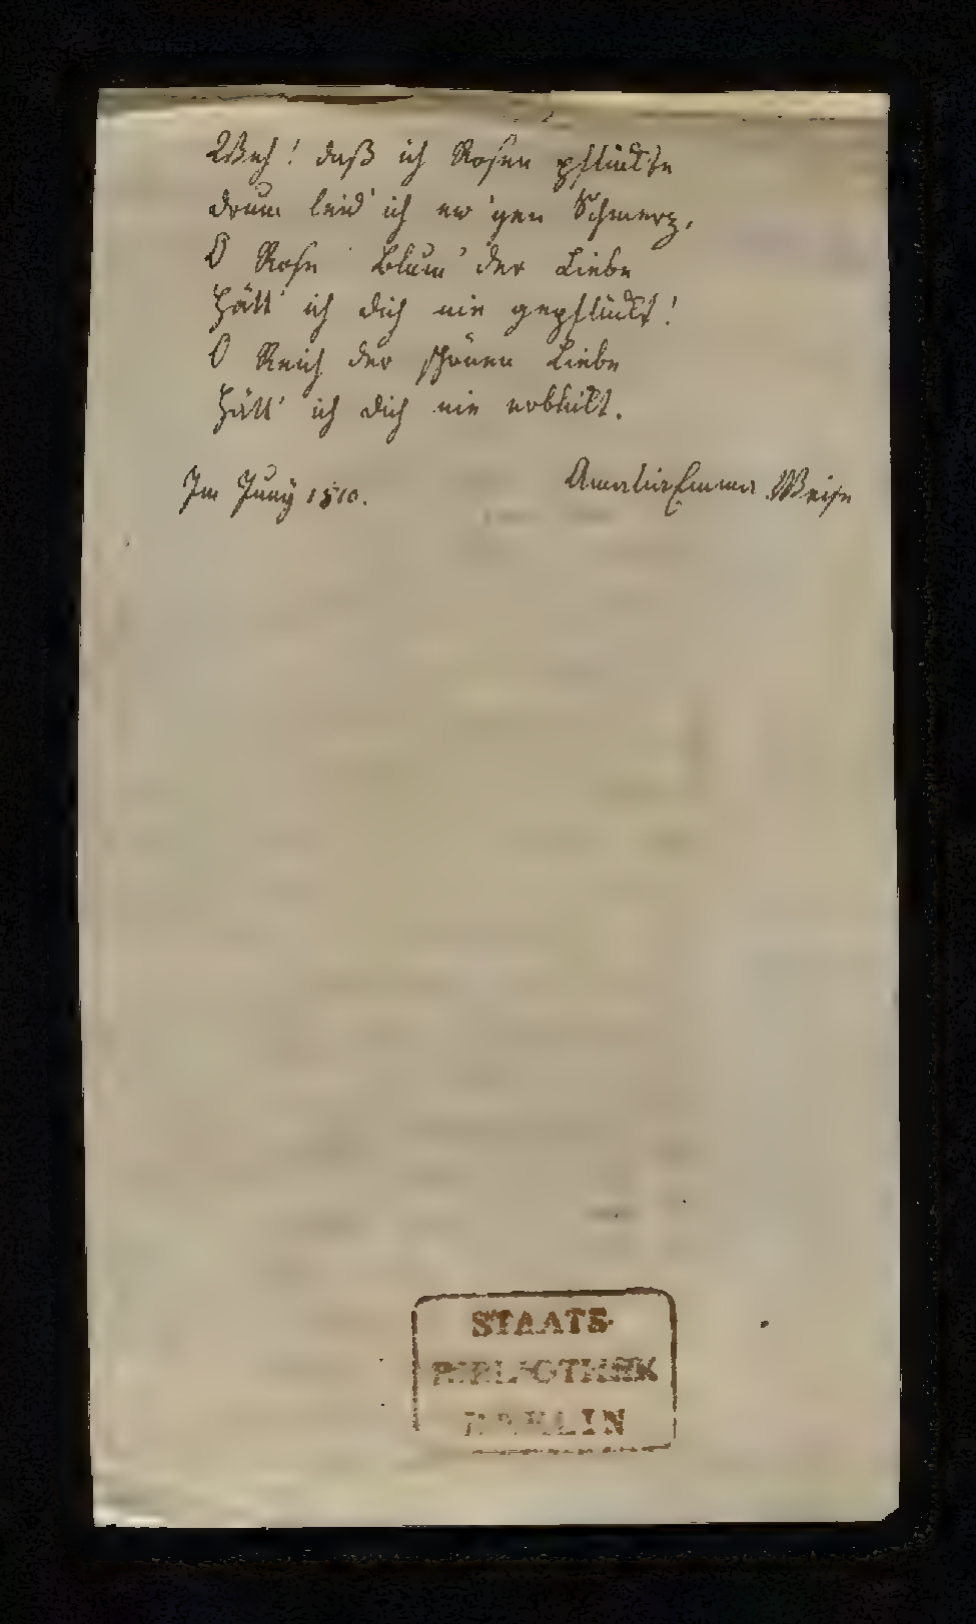 Weh! daß ich Rosen pflückte
drum leid' ich ew'gen Schmerz,
O Rose Blum' der Liebe
Hätt' ich dich nie gepflückt!
O Reich der schönen Liebe
Hätt' ich dich nie erblickt.
Im Juny 1810. Amalie Emma Weise
STAATS-
BIBLIOTHEK
BERLIN